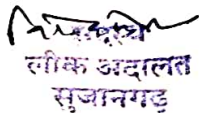 लोक अदालत
सुजानगढ़